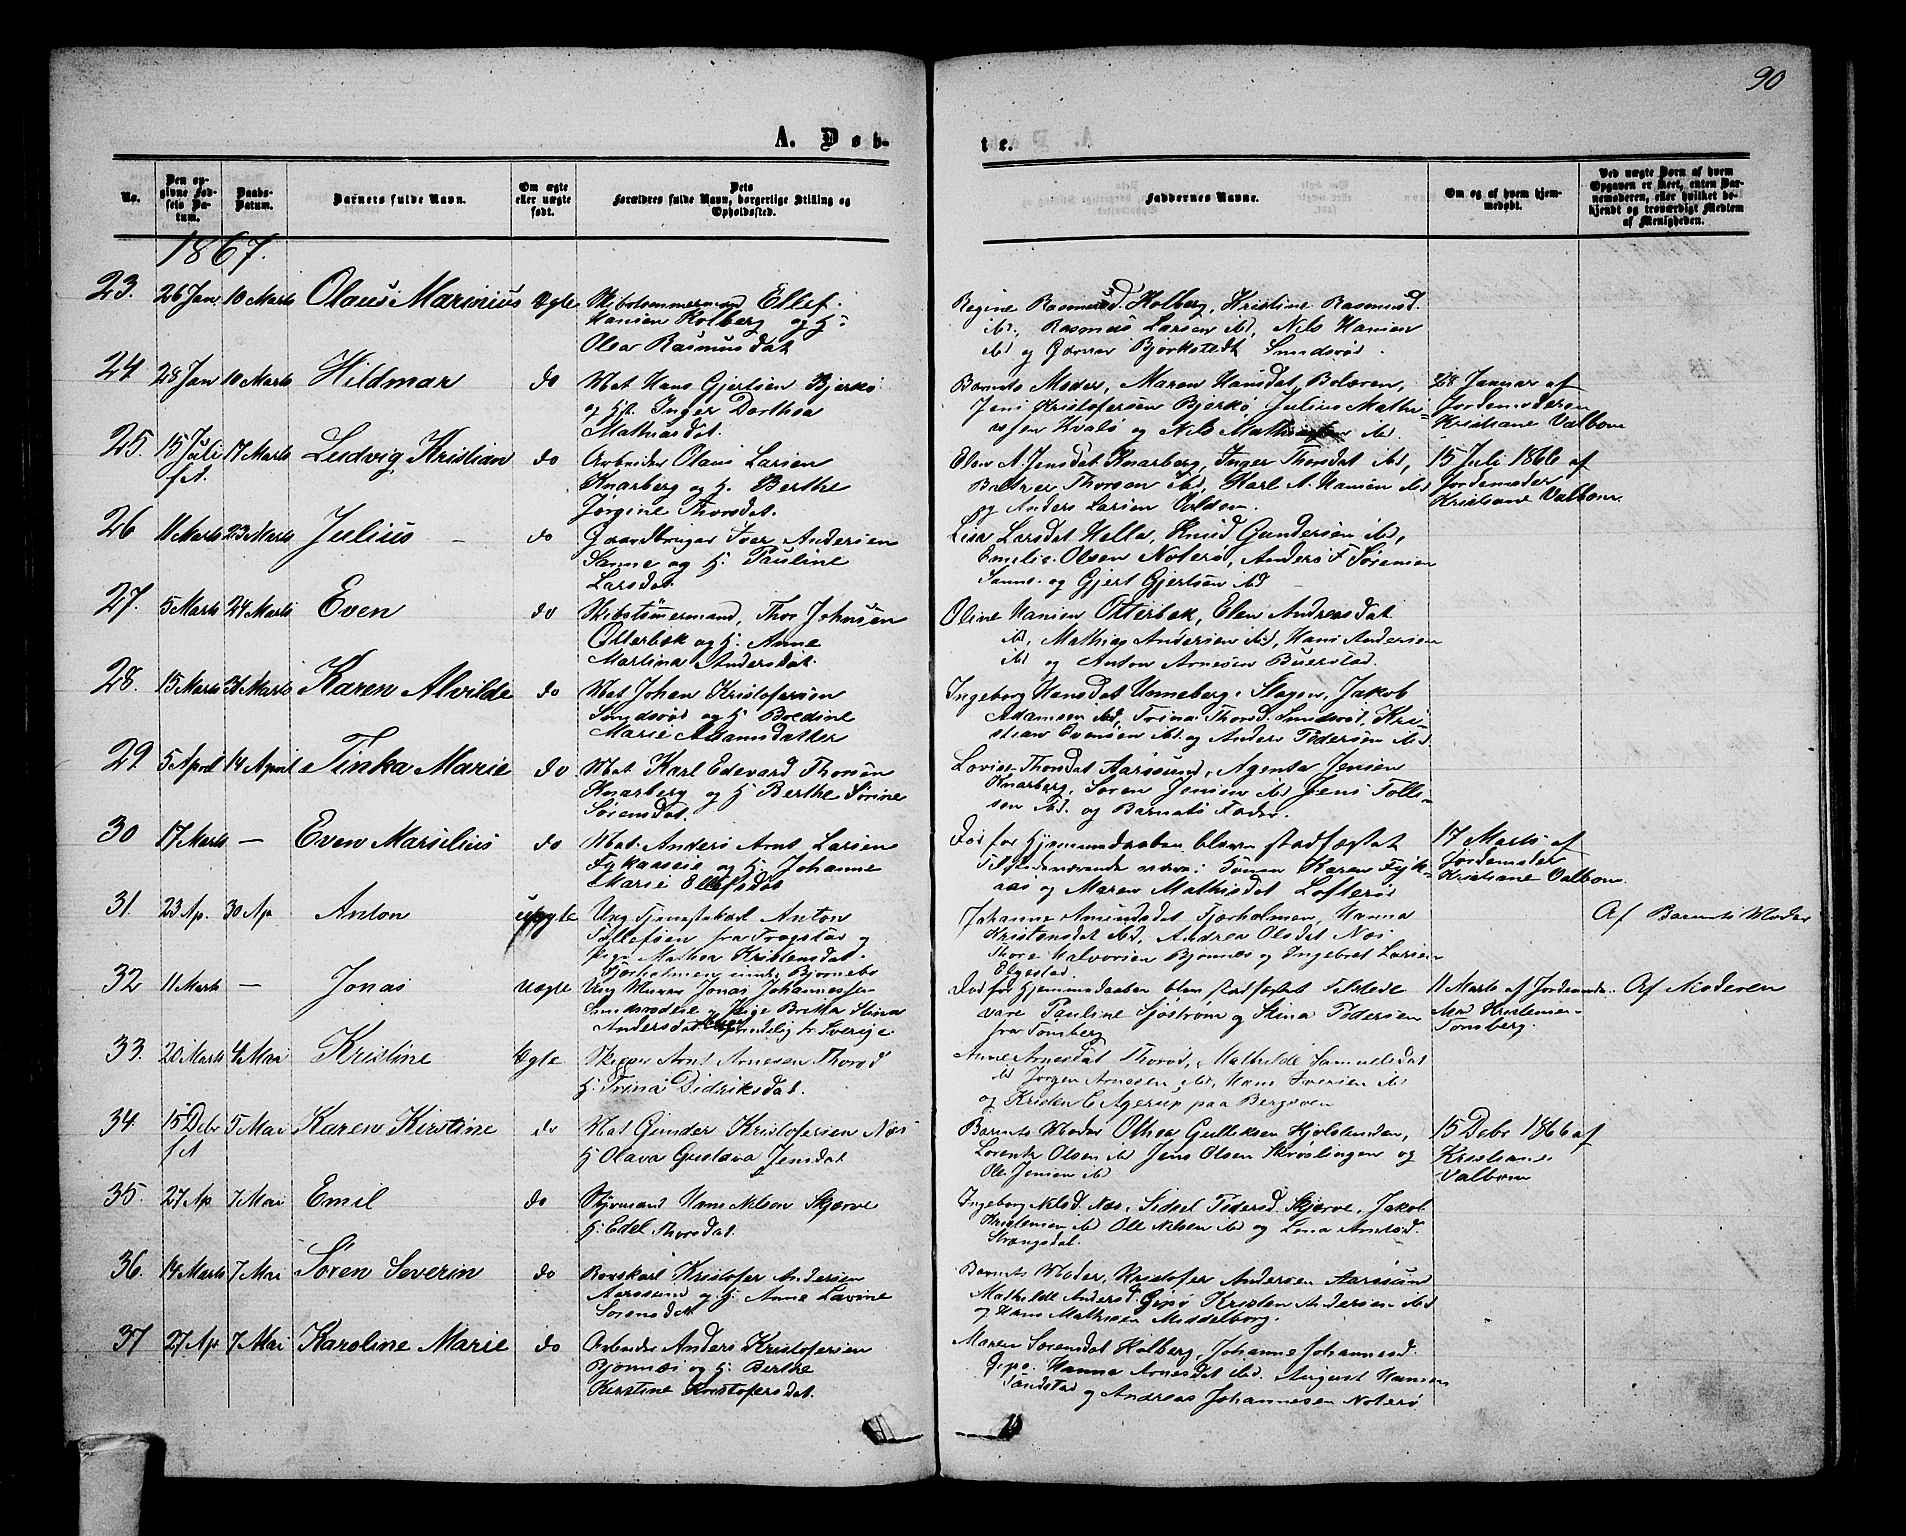 90
A. Døb-
te.
No.
Den op-
givne Fød-
sels Da-
tum.
Daabs-
Datum.
Barnets fulde Navn.
Om ægte
eller uægte
født.
Dets
Forældres fulde Navn, borgerlige Stilling og
Opholdssted.
Faddernes Navne.
Om og af hvem hjem-
medøbt.
Ved uægte Børn af hvem
Opgaven er skeet, enten Bar-
nemoderen, eller hvilket be-
kjendt og troværdigt Medlem
af Menigheden.
1867.
23. 26 Jan 10 Marts Olaus Marinius Ægte Skibstømmermand Ellef
Hansen Kolberg og H:
Olea Rasmusdat
Regine Rasmusd. Holberg, Kristine Rasmusd.
ibd, Rasmus Larsen ibd, Nils Hansen
ibd og Gunner Bjørkstedt Sundsrød.
24. 28 Jan 10 Marts Hildmar do Mat Hans Gjertsen Bjerkø
og H. Inger Dorthea
Mathiasdat.
Barnets Moder, Maren Hansdat, Bolæren,
Jens Kristofersen Bjerkø, Julius Mathi-
assen Hvalø og Nils Mathiassen ibd.
28 Januar af
Jordemoderen
Kristiane Valbom
25. 15 Juli 17 Marts Ludvig Kristian do Arbeider Olaus Larsen
f A.
Knarberg og H. Berthe
Jørgine Thorsdat.
Elen A. Jensdat Knarberg, Inger Thorsdat ibd,
Thorsen ibd, Karl A. Hansen ibd
og Anders Larsen
15 Juli 1866 af
Jordemoder
Kristiane Valbom
26 11 Marts 23 Marts Julius - do Gaardbruger Iver Andersen
Sanne og H. Pauline
Larsdat.
Lisa Larsdat Hella, Knud Gundersen ibd,
Emelie Olsen Noterø, Anders F Sørensen
Sanne og Gjert Gjertsen ibd
27. 5 Marts 24 Marts Even do Skibstømermand, Thor Johnsen
Otterbek og H. Anne
Martina Andersdat.
Oline Hansen Otterbek, Elen Andreasdat
ibd, Mathias Andersen ibd, Hans Andersen
ibd og Anton Arnesen Buerstad.
28. 15 Marts 31 Marts Karen Alvilde do Mat Johan Kristofersen
Sundsrød og H Bredine
Marie Adamsdatter
Ingeborg Hansdat Unneberg i Slagen, Jakob
Adamsen ibd, Trina Thorsd. Sundsrød, Kri-
stian Evensen ibd. og Anders Pedersen ibd.
29. 5 April 14 April Tinka Marie do Mat. Karl Edevard Thorsen
Knarberg og H Berthe Sørine
Sørensdat.
Lovise Thorsdat Aarssund, Agenta Jensen
Knarberg, Søren Jensen ibd Jens Tolli-
sen ibd. og Barnets Fader.
30 17 Marts - Even Marsilius do Mat. Anders Arnt Larsen
og H Johanne
Marie Ellefsdat
Død før Hjemmedaaben bleven stadfæstet
Tilstedeværende vare: Karen Fyk-
aas og Maren Mathisdat Lofterød
17 Marts af
Jordemoder
Kristiane Valbom.
31. 23 Ap. 30 Ap Anton uægte Ung Tjenestekarl Anton
Tollefsen fra Trøgstad og
Pige Mathea Kristensdat.
Fjærholmen Bjørnebo
Johanne Amundsdat Fjærholmen, Hanna
Kristensdat ibd, Andrea Olsdat Næs
Thore Halvorsen Bjønnæs og Ingebret Larsen
Elgestad.
Af Barnets Moder
32 11 Marts - Jonas Uægte Ung Murer Jonas Johannessen
og Pige Britta Stina
Andersdat fr Sverige.
Død før Hjemmedaaben blev stadfæstet Tilstede
vare Pauline Sjøstrøm og Stina Pedersen
fra Tønsberg
11 Marts af Jordemode.
Kristensen
Tønsberg.
Af Moderen
33. 20 Marts 4 Mai Kristine Ægte Skipper Arnt Arnesen Thorød
H. Trina Didriksdat.
Anne Arnesdat Thorød, Mathilde Samuelsdat
ibd Jørgen Arnesen ibd, Hans Iversen ibd
og Kristen C Agerup paa Bergsven
34. 15 Debr 5 Mai Karen Kirstine do Mat Gunder Kristofersen Næs
f A
H Olava Gustava Jensdat
Barnets Moder Othea Gulliksen Hjolstenden,
Lorents Olsen ibd Jens Olsen Skrøslingen og
Ole Jensen ibd
15 Debr 1866 af
Kristiane
Valbom
35. 27 Ap 7 Mai Emil do Styrmand Hans Nilsen Skjærve
H. Edel Thorsdat.
Ingeborg Nilsd. Næs, Sidsel Pedersd. Skjærve, Jakob
Kristensen ibd Ole Nilsen ibd og Lena Arntsd.
Strængsdal.
36. 14 Marts 7 Mai Søren Severin do Bøvskarl Kristofer Andersen
Aarssund og H. Anne Lavine
Sørensdat
Barnets Moder, Kristofer Andersen Aarssund
Mathilde Andersd. Gipø Kristen Andersen ibd
og Hans Mathisen Middelborg.
37 27 Ap 7 Mai Karoline Marie do Arbeider Anders Kristofersen
Bjønnæs og H. Berthe
Kirstine Kristofersdat.
Maren Sørensdat Holberg, Johanne Johannesd.
Gipø. Hanna Arnesdat ibd. August Hansen
Tandstad og Andreas Johannesen Noterø